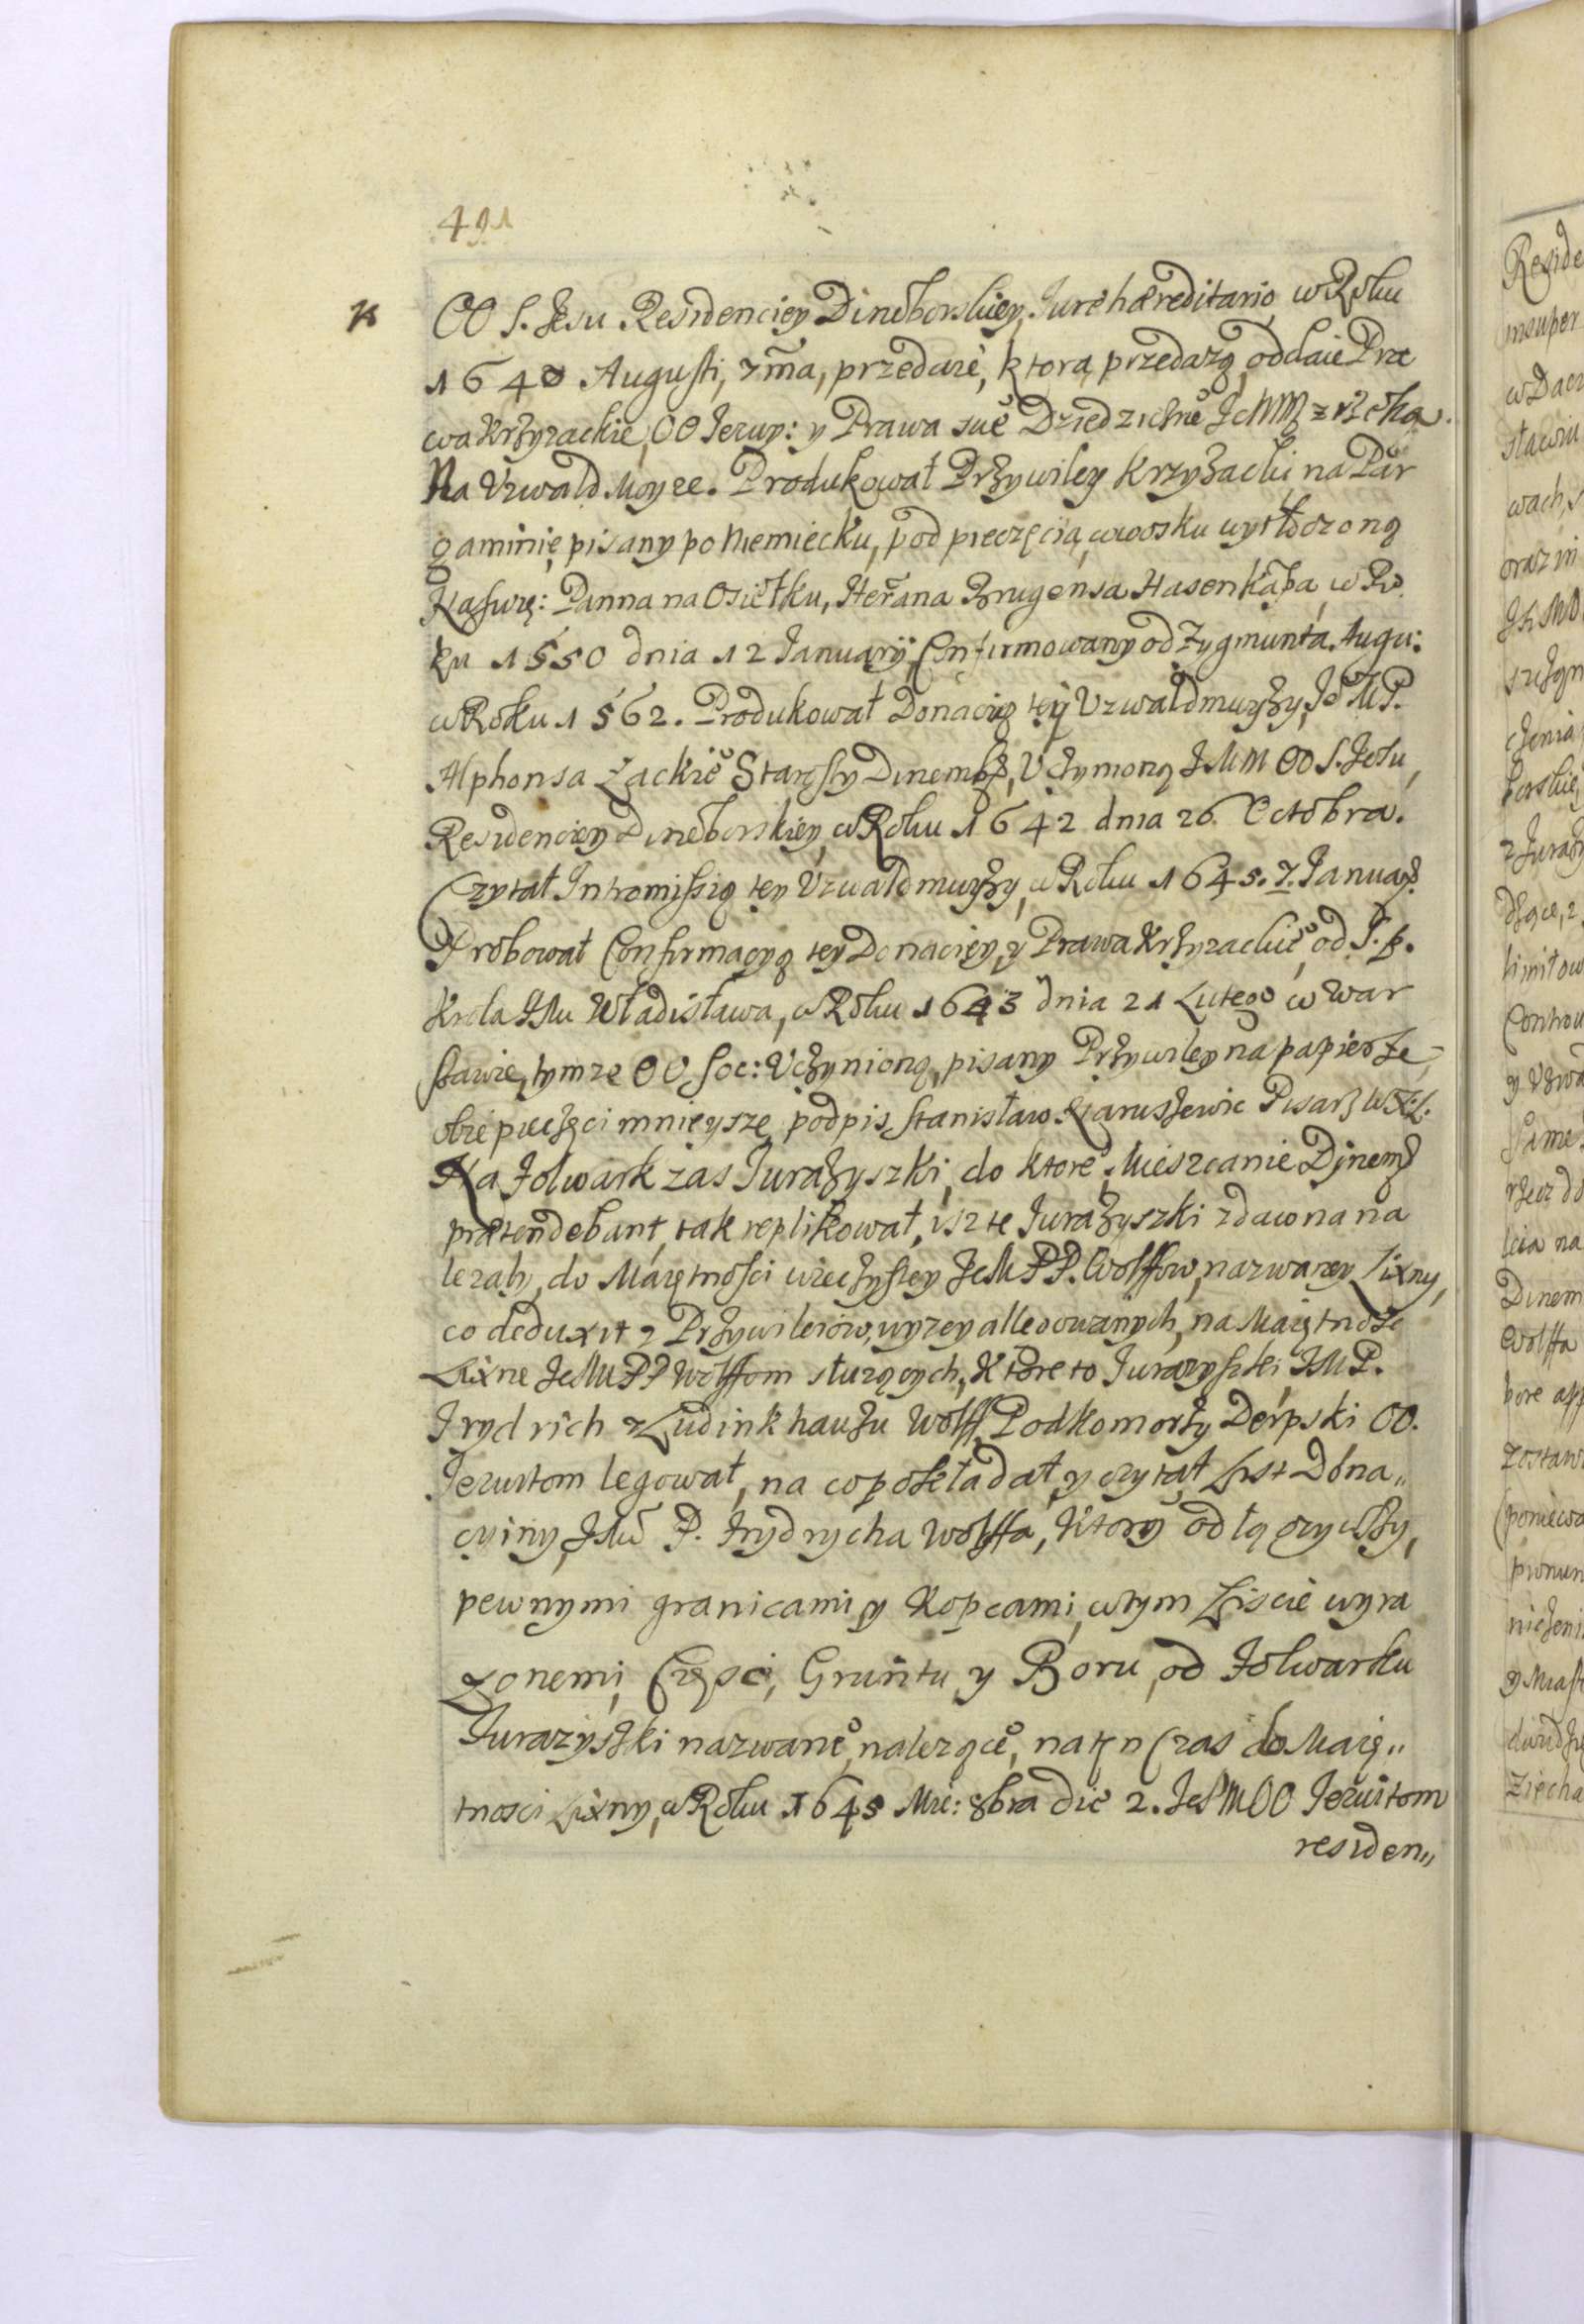 491
OO S. Jesu Residenciey Dineborskiey, Jure hæreditario, w Roku
1640 Augusti, 7ma, przedaie, ktorą przedazą, oddaie Pra
wa Krzyzackie, OO Jezuy: y Prawa sue Dziedziczne
Na Vzwald Moyze. Produkował Przywiley Krzyżacki na Par
gaminie, pisany po Niemiecku, pod pieczęcią, w wosku wytłoczoną
Panna na Osiełku, Hermana Brugensa Hasenkąba, w Ro
ku 1550 dnia 12 Januarij, Confirmowany od Zygmunta Augu:
w Roku 1562. Produkował Donacią tey Vzwaldmuyży, Je M P.
Alphonsa Lackie° Starosty Dinemb, Vczynioną J M M OO S. Jesu,
Residenciey Dineborskiey, w Roku 1642 dnia 26 Octobra.
Czytał Intromissią tey Vzwaldmuyży, w Roku 1645. 7. January
Probował Confirmacyą tey Donaciey, y Prawa Krzyzackie°, od S. p.
Krola JMu Władisława, w Roku 1643 dnia 21 Lutego w War
szawie, tymze OO Soc: Vczynioną, pisany Przywiley na papierze,
obie pieczęci mnieysze, podpis Stanisław Naruszewic Pisarz W X L.
Na Folwark zas Jurażyszki, do ktore° Mieszcanie Dynemb
prætendebant, tak replikował, isz te Jurażyszki zdawna na
lezały, do Maiętności wieczystey Je M P P. Wolffow, nazwaney Lixny,
co deduxit z Przywileiow, wyzey allegowanych, na Maiętnosc
Lixne Je M P P Wolffom słuzących, Które to Jurazyszki J M P.
Frydrich z Ludinkhauzu Wolff, Podkomorży Derpski OO.
Jezuitom legował, na co pokładał, y czytał List Dona„
cyiny, JMu P. Frydrycha Wolffa, Ktory odłączywszy,
pewnymi granicami y Kopcami, w tym Liscie wyra
zonemi, Częsci, Gruntu y Boru, od Folwarku
Jurazyszki nazwane°, nalezące°, na ten Czas do Maię„
tnosci Lixny, w Roku 1645 Mie: 8bra die 2. Je M M OO Jezuitom
residen„